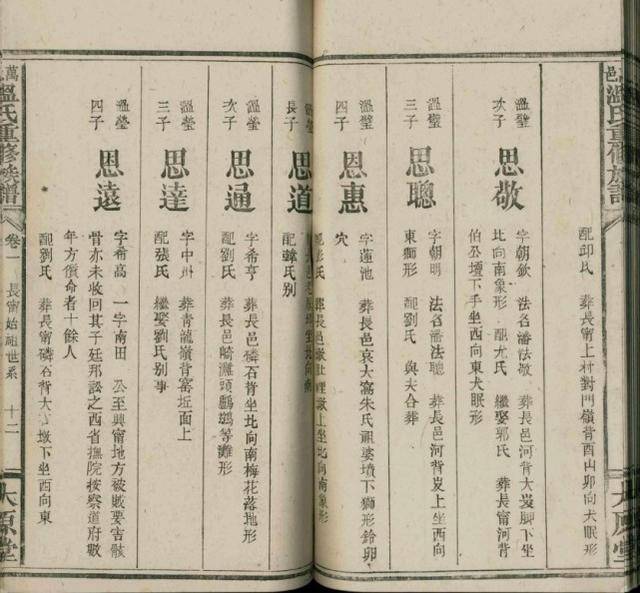 邑溫氏重修族譜
太原堂
配邱氏 葬長甯上村對門嶺背酉山卯向犬眠形
溫璧次子 思敬
字朝欽 法名潘法敬 葬長邑河背大岌脚下坐
比向南象形 配尤氏 繼娶郭氏 葬長甯河背
伯公壇下手坐西向東犬眠形
溫璧三子 思聰
字朝明 法名潘法聰 葬長邑河背岌上坐西向
東獅形 配劉氏 與夫合葬
溫璧四子 恩惠
字蓮池 葬長邑哀大窩朱氏祖婆墳下獅形鈴卵
穴
溫瑩長子 思道
配韓氏别
溫瑩次子 思通
字希亨 葬長邑磷石背坐北向南梅花落地形
配劉氏 葬長邑﨑灘頭鸕鷀等灘形
溫瑩三子 思達
字中州 葬青龍嶺背窰坵面上
配張氏 繼娶劉氏别事
溫瑩四子 思遠
字希高 一字南田 公至興甯地方被賊要害骸
骨亦未收回其子廷邦訟之西省撫院按察道府數
年方償命者十餘人
配劉氏 葬長甯磷石背大墩下坐西向東
萬邑溫氏重修族譜
卷一 長甯始祖世系 十二
太原堂